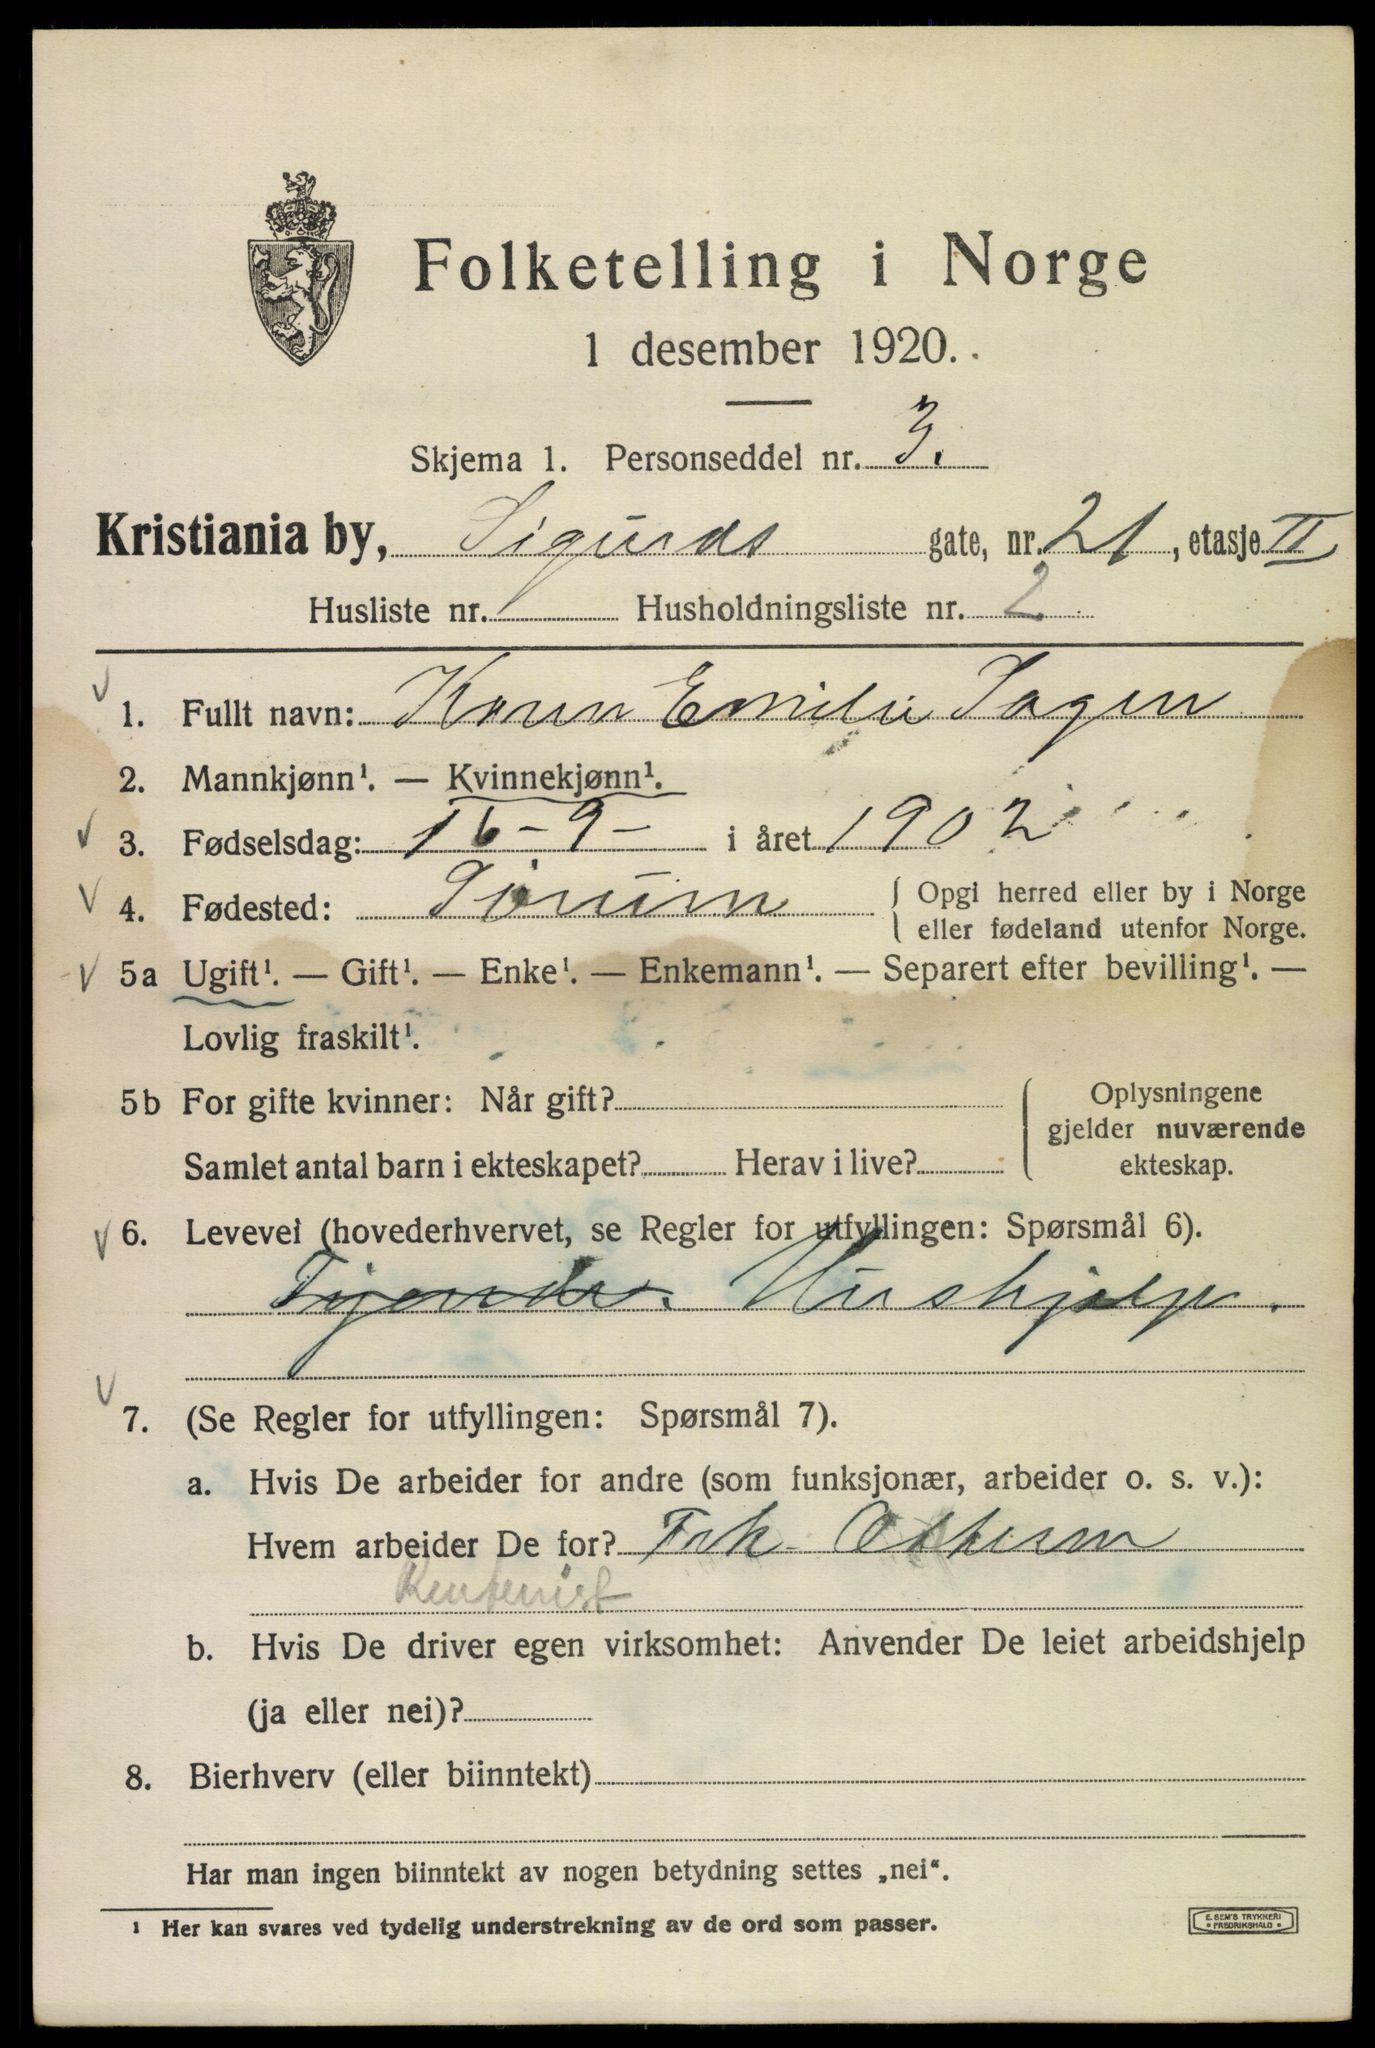 Folketelling i Norge
1 desember 1920.
Skjema 1. Personseddel nr. 3.
Kristiania by, Sigurds gate, nr. 21, etasje II
Husliste nr. Husholdningsliste nr. 2
1. Fullt navn: Karen Emilie Sagen
2. Mannkjønn¹. — Kvinnekjønn¹.
3. Fødselsdag: 16-9- i året 1902
4. Fødested: Sørum { Opgi herred eller by i Norge
eller fødeland utenfor Norge.
5a Ugift¹. — Gift¹. — Enke¹. — Enkemann¹. — Separert efter bevilling¹. —
Lovlig fraskilt¹.
5b For gifte kvinner: Når gift? Oplysningene
gjelder nuværende
Samlet antal barn i ekteskapet? Herav i live? ekteskap.
6. Levevei (hovederhvervet, se Regler for utfyllingen: Spørsmål 6).
Tjener Hushjelp.
7. (Se Regler for utfyllingen: Spørsmål 7).
a. Hvis De arbeider for andre (som funksjonær, arbeider o. s. v.):
Hvem arbeider De for? Frk.
Rentenist
b. Hvis De driver egen virksomhet: Anvender De leiet arbeidshjelp
(ja eller nei)?
8. Bierhverv (eller biinntekt)
Har man ingen biinntekt av nogen betydning settes „nei“.
¹ Her kan svares ved tydelig understrekning av de ord som passer.
E. SEM'S TRYKKERI
• FREDRIKSHALD •